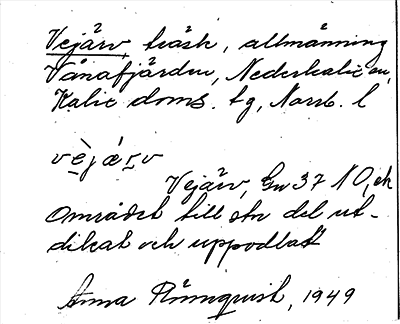 Vejärv, träsk, allmänning
Vånafjärden, Nederkalix sn,
Kalix doms. tg, Norrb. l
vèjárv
Vejärv, Gw 37 NO, ek
Området till stn del ut-
dikat och uppodlat
Anna Rönnquist, 1949